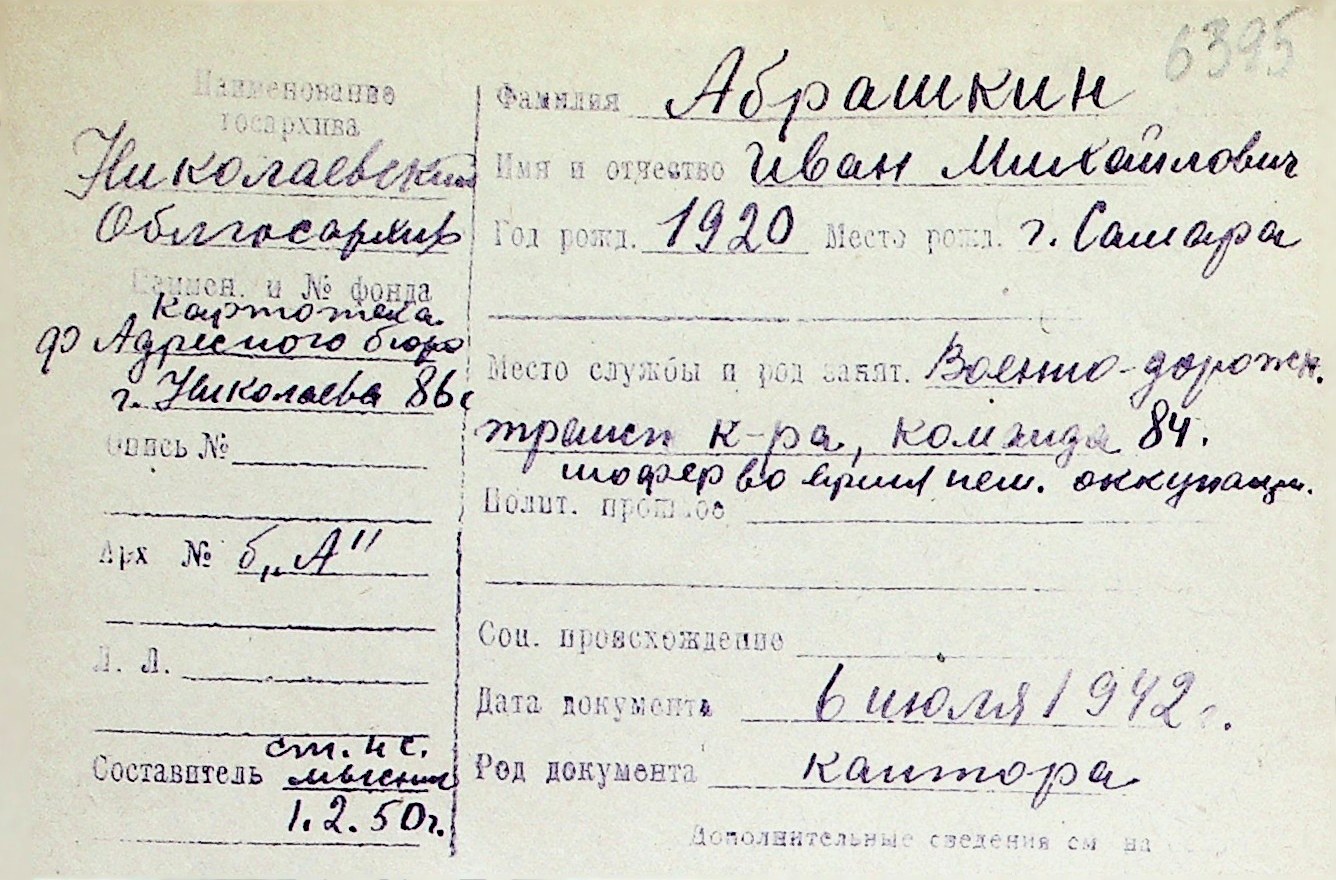 6395
Наименование
госархива
Николаевский
Облгосархив
Наимен. и № фонда
картотека
ф Адресного бюро
г. Николаева 86с
Опись №
Арх №
б. „А"
Л. Л.
Составитель
ст. н с.
1.2.50г.
Фамилия Абрашкин
Имя и отчество Иван Михайлович
Год рожд. 1920 Место рожд. г. Самара
Место службы и род занят. Военно-дорожн.
трансп к-ра, команда 84.
шофер во время нем. оккупации.
Полит. прошлое
Соц. происхождение
Дата документа 6 июля 1942 г.
Род документа контора
Дополнительные сведения см на